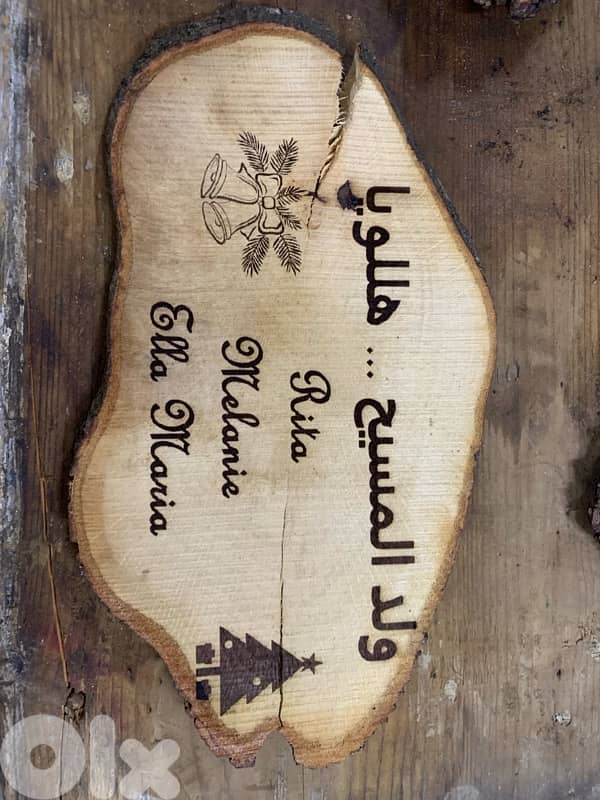 ولد المسيح ... هللويا
Rita
Melanie
Ella Maria
olx